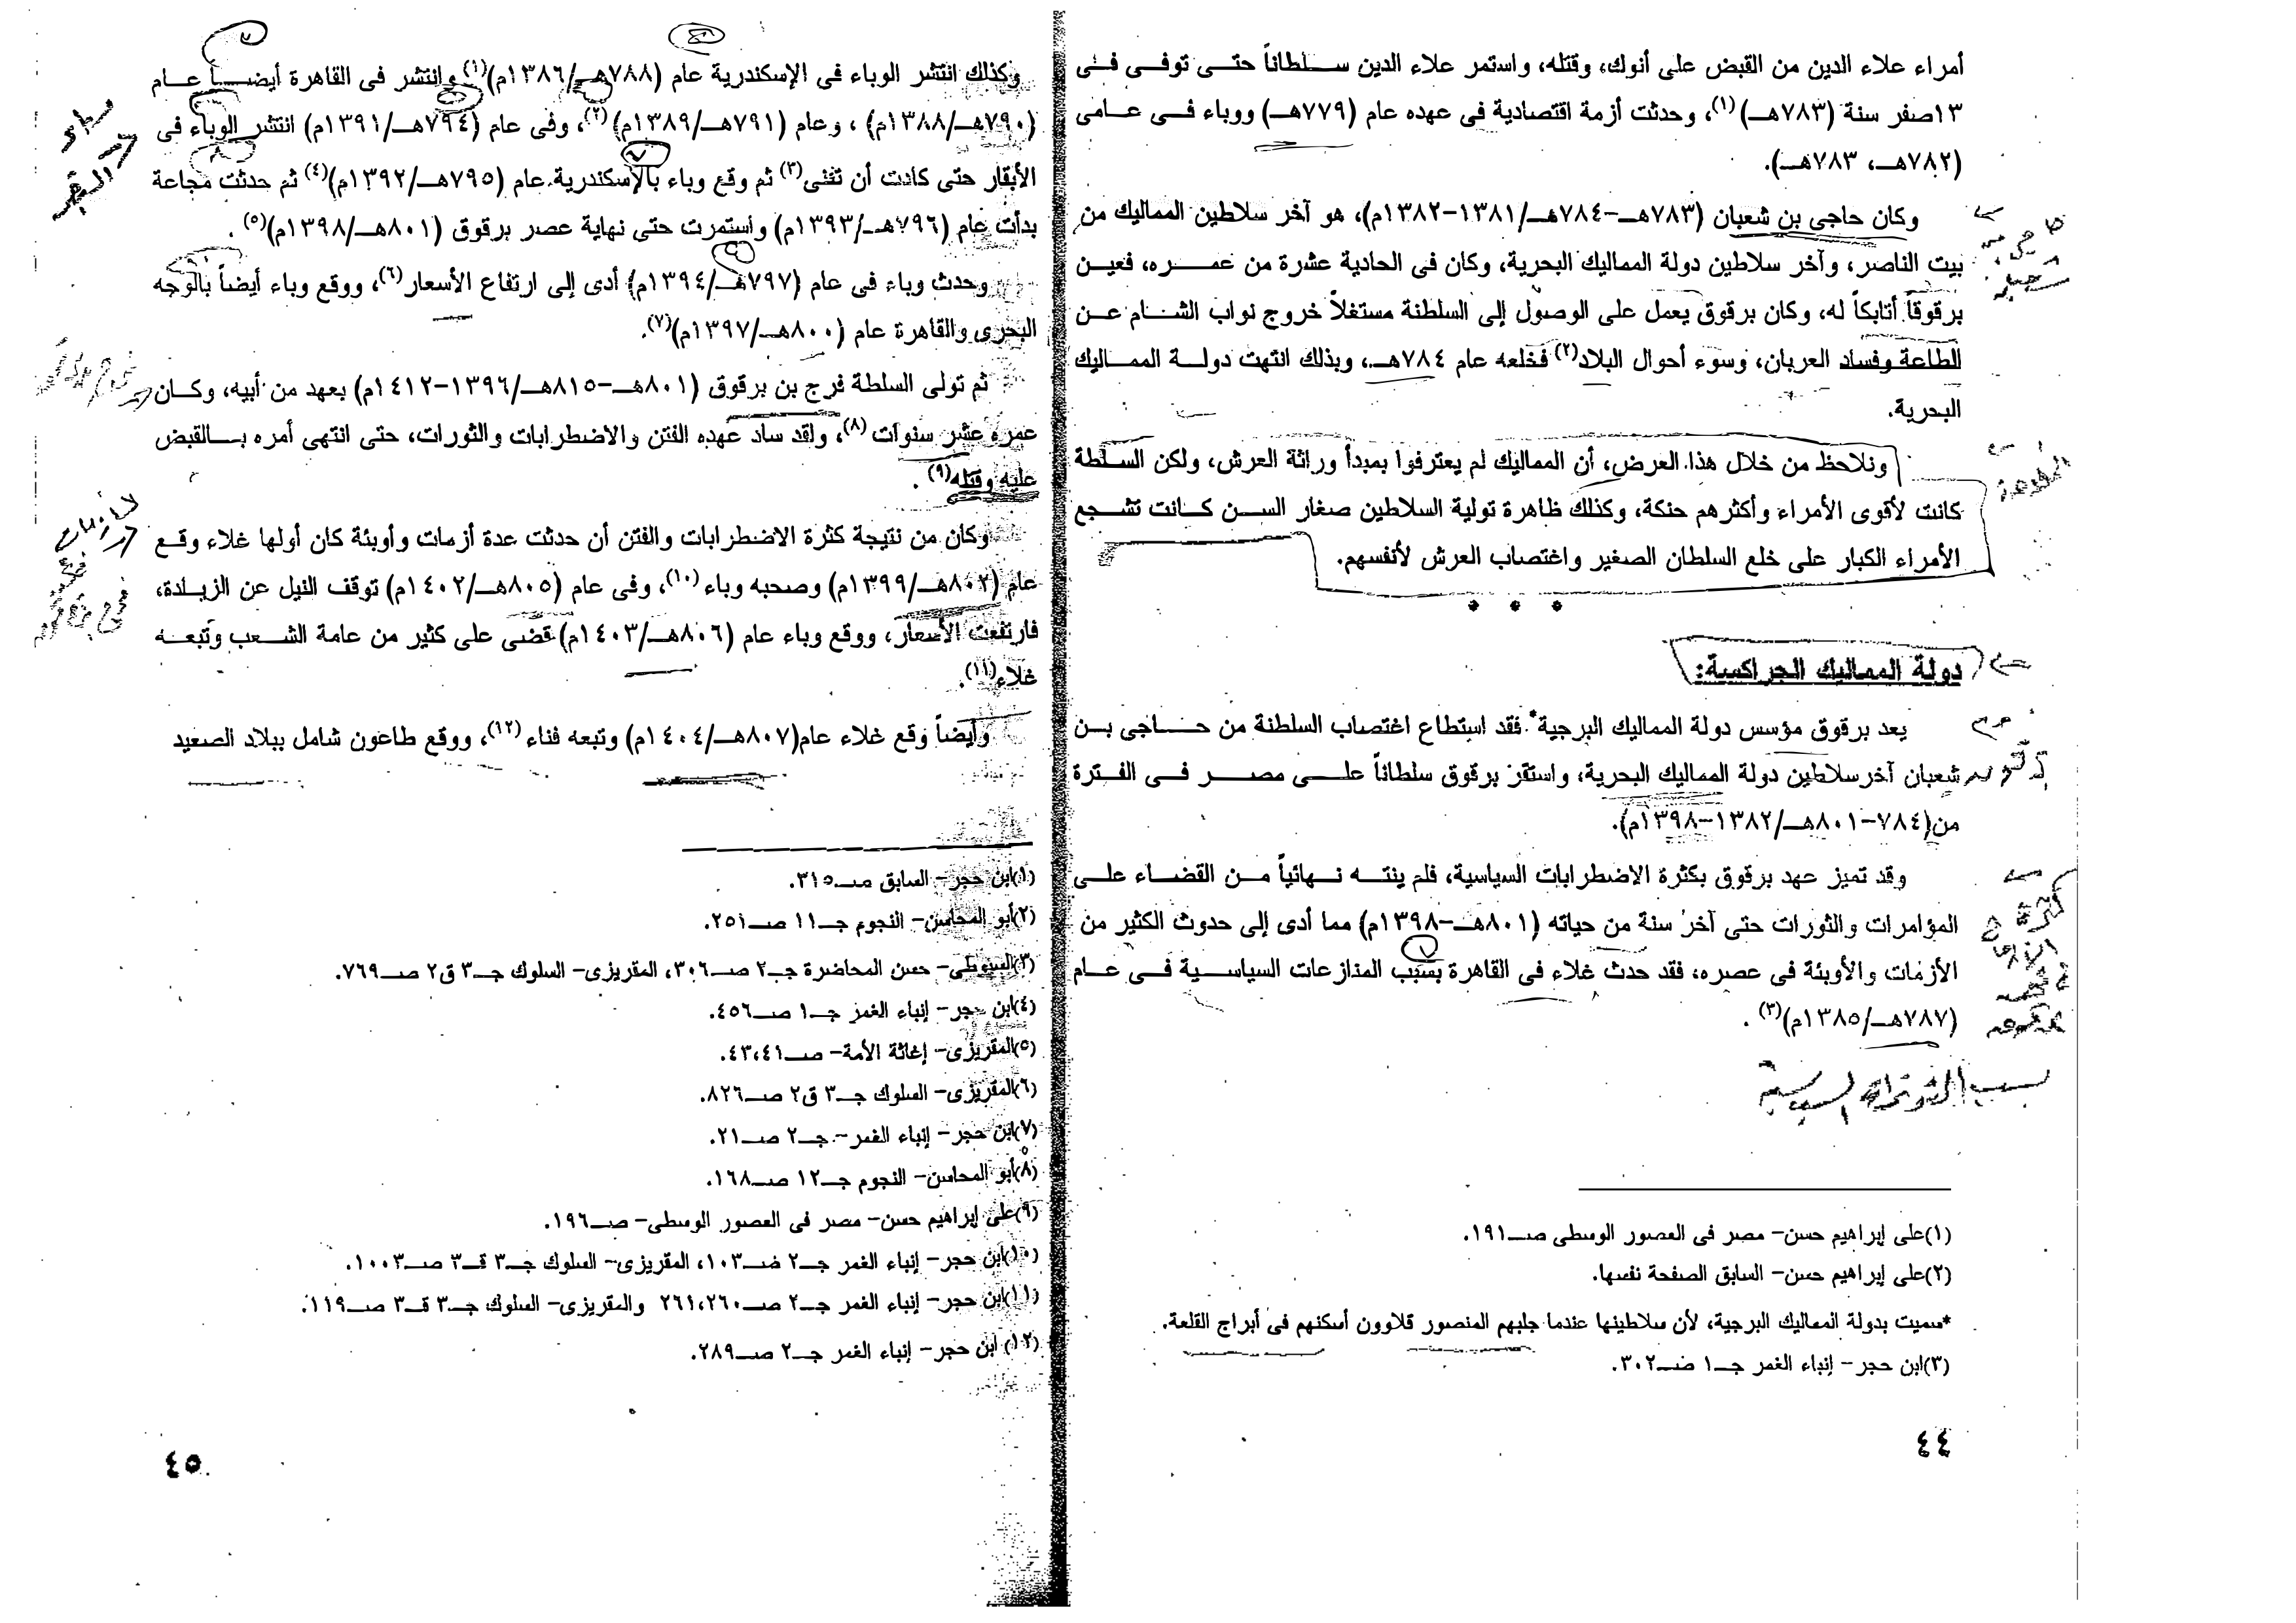 أمراء علاء الدين من القبض على أنوك، وقتله، واستمر علاء الدين سلطاناً حتى توفى فى
١٣صفر سنة (٧٨٣هـ)(١)، وحدثت أزمة اقتصادية فى عهده عام (٧٧٩هـ) ووباء فى عامى
(٧٨٢هـ، ٧٨٣هـ).
وكان حاجى بن شعبان (٧٨٣هـ-٧٨٤هـ/١٣٨١-١٣٨٢م)، هو آخر سلاطين المماليك من
بيت الناصر، وآخر سلاطين دولة المماليك البحرية، وكان فى الحادية عشرة من عمره، فعين
برقوقاً أتابكاً له، وكان برقوق يعمل على الوصول إلى السلطنة مستغلاً خروج نواب الشام عن
الطاعة وفساد العربان، وسوء أحوال البلاد(٢) فخلعه عام ٧٨٤هـ، وبذلك انتهت دولة المماليك
البحرية.
ونلاحظ من خلال هذا العرض، أن المماليك لم يعترفوا بمبدأ وراثة العرش، ولكن السلطة
كانت لأقوى الأمراء وأكثرهم حنكة، وكذلك ظاهرة تولية السلاطين صغار السن كانت تشجع
الأمراء الكبار على خلع السلطان الصغير واغتصاب العرش لأنفسهم.
* * *
دولة المماليك الجراكسة:
يعد برقوق مؤسس دولة المماليك البرجية* فقد استطاع اغتصاب السلطنة من حاجى بن
شعبان آخرسلاطين دولة المماليك البحرية، واستقر برقوق سلطاناً على مصر فى الفترة
من(٧٨٤-٨٠١هـ/١٣٨٢-١٣٩٨م).
وقد تميز عهد برقوق بكثرة الاضطرابات السياسية، فلم ينته نهائياً من القضاء على
المؤامرات والثورات حتى آخر سنة من حياته (٨٠١هـ-١٣٩٨م) مما أدى إلى حدوث الكثير من
الأزمات والأوبئة فى عصره، فقد حدث غلاء فى القاهرة بسبب المنازعات السياسية فى عام
(٧٨٧هـ/١٣٨٥م)(٣).
(١)على إبراهيم حسن- مصر فى العصور الوسطى صـ١٩١.
(٢)على إبراهيم حسن- السابق الصفحة نفسها.
*سميت بدولة المماليك البرجية، لأن سلاطينها عندما جلبهم المنصور قلاوون أسكنهم فى أبراج القلعة.
(٣)ابن حجر- إنباء الغمر جـ١ صـ٣٠٢.
٤٤
وكذلك انتشر الوباء فى الإسكندرية عام (٧٨٨هـ/١٣٨٦م)(١) وانتشر فى القاهرة أيضاً عام
(٧٩٠هـ/١٣٨٨م) ، وعام (٧٩١هـ/١٣٨٩م)(٢)، وفى عام (٧٩٤هـ/١٣٩١م) انتشر الوباء فى
الأبقار حتى كادت أن تفنى(٣) ثم وقع وباء بالإسكندرية عام (٧٩٥هـ/١٣٩٢م)(٤) ثم حدثت مجاعة
بدأت عام (٧٩٦هـ/١٣٩٣م) واستمرت حتى نهاية عصر برقوق (٨٠١هـ/١٣٩٨م)(٥) .
وحدث وباء فى عام (٧٩٧هـ/١٣٩٤م) أدى إلى ارتفاع الأسعار(٦)، ووقع وباء أيضاً بالوجه
البحرى والقاهرة عام (٨٠٠هـ/١٣٩٧م)(٧).
ثم تولى السلطة فرج بن برقوق (٨٠١هـ-٨١٥هـ/١٣٩٦-١٤١٢م) بعهد من أبيه، وكان
عمره عشر سنوات(٨)، ولقد ساد عهده الفتن والاضطرابات والثورات، حتى انتهى أمره بالقبض
عليه وقتله(٩) .
وكان من نتيجة كثرة الاضطرابات والفتن أن حدثت عدة أزمات وأوبئة كان أولها غلاء وقع
عام (٨٠٢هـ/١٣٩٩م) وصحبه وباء(١٠)، وفى عام (٨٠٥هـ/١٤٠٢م) توقف النيل عن الزيادة،
فارتفعت الأسعار، ووقع وباء عام (٨٠٦هـ/١٤٠٣م) قضى على كثير من عامة الشعب وتبعه
غلاء(١١).
وأيضاً وقع غلاء عام(٨٠٧هـ/١٤٠٤م) وتبعه فناء(١٢)، ووقع طاعون شامل ببلاد الصعيد
(١)ابن حجر- السابق صـ٣١٥.
(٢)أبو المحاسن- النجوم جـ١١ صـ٢٥١.
(٣)السيوطى- حسن المحاضرة جـ٢ صـ٣٠٦، المقريزى- السلوك جـ٣ ق٢ صـ٧٦٩.
(٤)ابن حجر- إنباء الغمر جـ١ صـ٤٥٦.
(٥)المقريزى- إغاثة الأمة- صـ٤٣،٤١.
(٦)المقريزى- السلوك جـ٣ ق٢ صـ٨٢٦.
(٧)ابن حجر- إنباء الغمر- جـ٢ صـ٢١.
(٨)أبو المحاسن- النجوم جـ١٢ صـ١٦٨.
(٩)على إبراهيم حسن- مصر فى العصور الوسطى- صـ١٩٦.
(١٠)ابن حجر- إنباء الغمر جـ٢ صـ١٠٣، المقريزى- السلوك جـ٣ قـ٣ صـ١٠٠٣.
(١١)ابن حجر- إنباء الغمر جـ٢ صـ٢٦١،٢٦٠ والمقريزى- السلوك جـ٣ قـ٣ صـ١١٩.
(١٢) ابن حجر- إنباء الغمر جـ٢ صـ٢٨٩.
٤٥